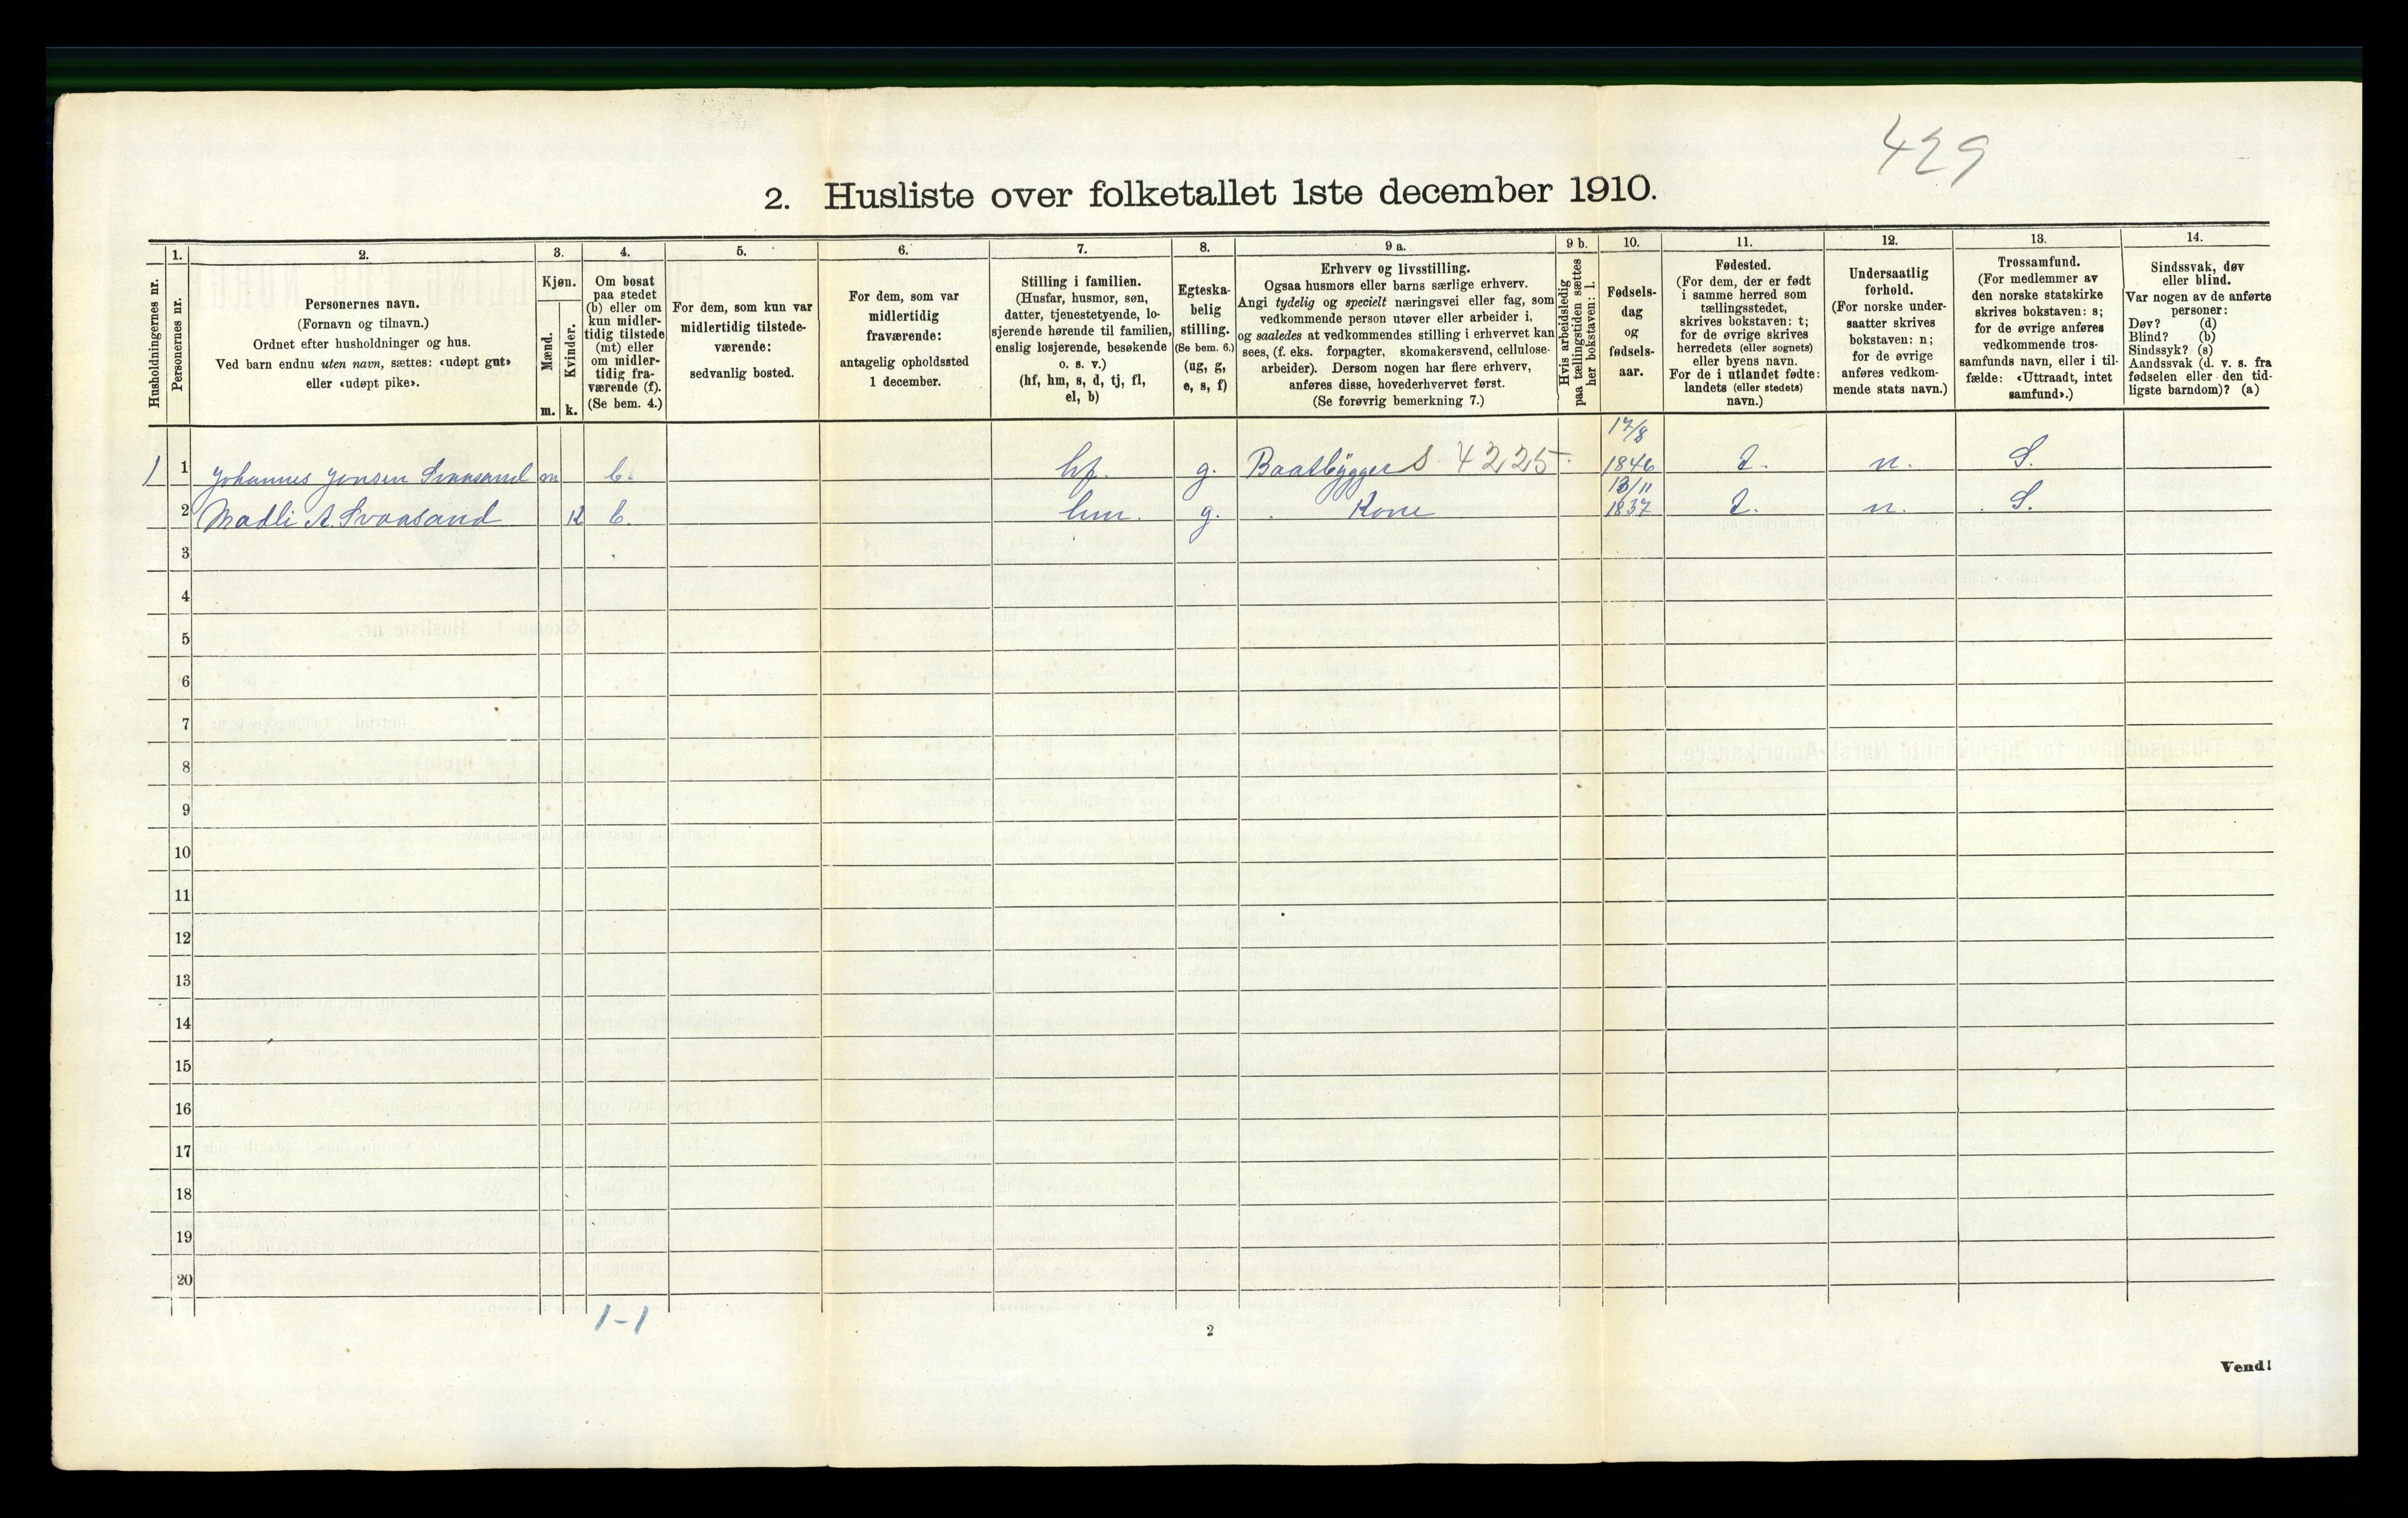 429
2. Husliste over folketallet 1ste december 1910.
Husholdningernes nr.
1.
Personernes nr.
2.
Personernes navn.
(Fornavn og tilnavn.)
Ordnet efter husholdninger og hus.
Ved barn endnu uten navn, sættes: «udøpt gut»
eller «udøpt pike».
3.
Kjøn.
Mænd.
m.
Kvinder.
k.
4.
Om bosat
paa stedet
(b) eller om
kun midler-
tidig tilstede
(mt) eller
om midler-
tidig fra-
værende (f).
(Se bem. 4.)
5.
For dem, som kun var
midlertidig tilstede-
værende:
sedvanlig bosted.
6.
For dem, som var
midlertidig
fraværende:
antagelig opholdssted
1 december.
7.
Stilling i familien.
(Husfar, husmor, søn,
datter, tjenestetyende, lo-
sjerende hørende til familien,
enslig losjerende, besøkende
o. s. v.)
(hf, hm, s, d, tj, fl,
el, b)
8.
Egteska-
belig
stilling.
(Se bem. 6.)
(ug, g,
e, s, f)
9 a.
Erhverv og livsstilling.
Ogsaa husmors eller barns særlige erhverv.
Angi tydelig og specielt næringsvei eller fag, som
vedkommende person utøver eller arbeider i,
og saaledes at vedkommendes stilling i erhvervet kan
sees, (f. eks. forpagter, skomakersvend, cellulose-
arbeider). Dersom nogen har flere erhverv,
anføres disse, hovederhvervet først.
(Se forøvrig bemerkning 7.)
9 b.
Hvis arbeidsledig
paa tællingstiden sættes
her bokstaven: l.
10.
Fødsels-
dag
og
fødsels-
aar.
11.
Fødested.
(For dem, der er født
i samme herred som
tællingsstedet,
skrives bokstaven: t;
for de øvrige skrives
herredets (eller sognets)
eller byens navn.
For de i utlandet fødte:
landets (eller stedets)
navn.)
12.
Undersaatlig
forhold.
(For norske under-
saatter skrives
bokstaven: n;
for de øvrige
anføres vedkom-
mende stats navn.)
13.
Trossamfund.
(For medlemmer av
den norske statskirke
skrives bokstaven: s;
for de øvrige anføres
vedkommende tros-
samfunds navn, eller i til-
fælde: «Uttraadt, intet
samfund».)
14.
Sindssvak, døv
eller blind.
Var nogen av de anførte
personer:
Døv? (d)
Blind? (b)
Sindssyk? (s)
Aandssvak (d. v. s. fra
fødselen eller den tid-
ligste barndom)? (a)
1 1 Johannes Jonsen Svaasand m b. hf. g. Baatbygger S 4225 17/8 1846 t. n. S.
2 Madli A. Svaasand k b. hm. g. Kone 13/11 1837 t. n. S.
3
4
5
6
7
8
9
10
11
12
13
14
15
16
17
18
19
20
1-1
2
Vend!